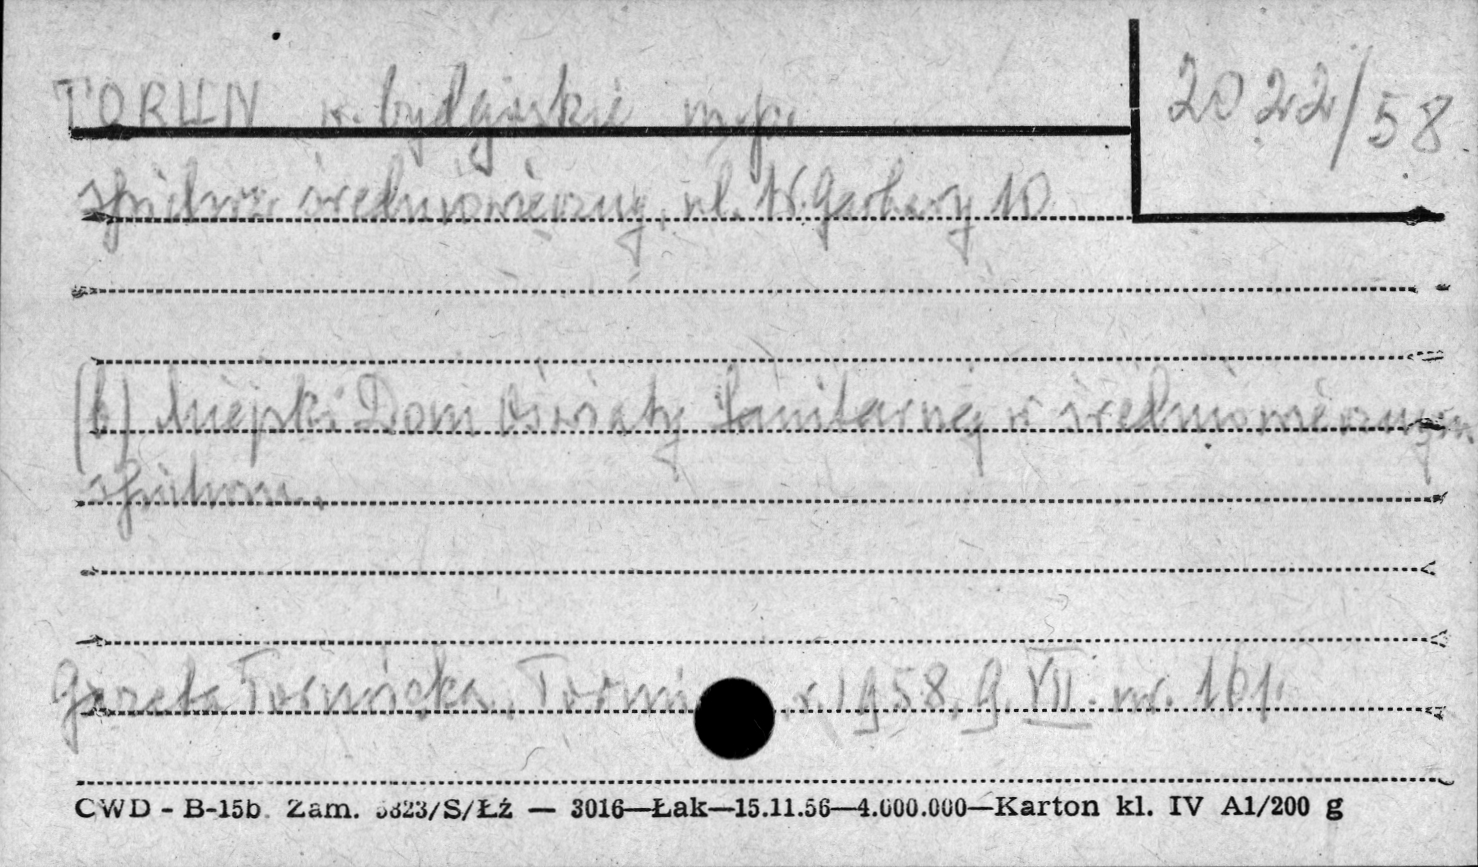 TORUŃ w. bydgoskie m.p.
2022/58
spichrz średniowieczny, ul. W. Garbary 10
(b) Miejski Dom Oświaty Sanitarnej w średniowiecznym
spichrzu.
Gazeta Toruńska, Toruń r. 1958. 9. VII. nr. 161.
CWD - B-15b. Zam. 5823/S/Łż — 3016—Łak—15.11.56—4.000.000—Karton kl. IV A1/200 g